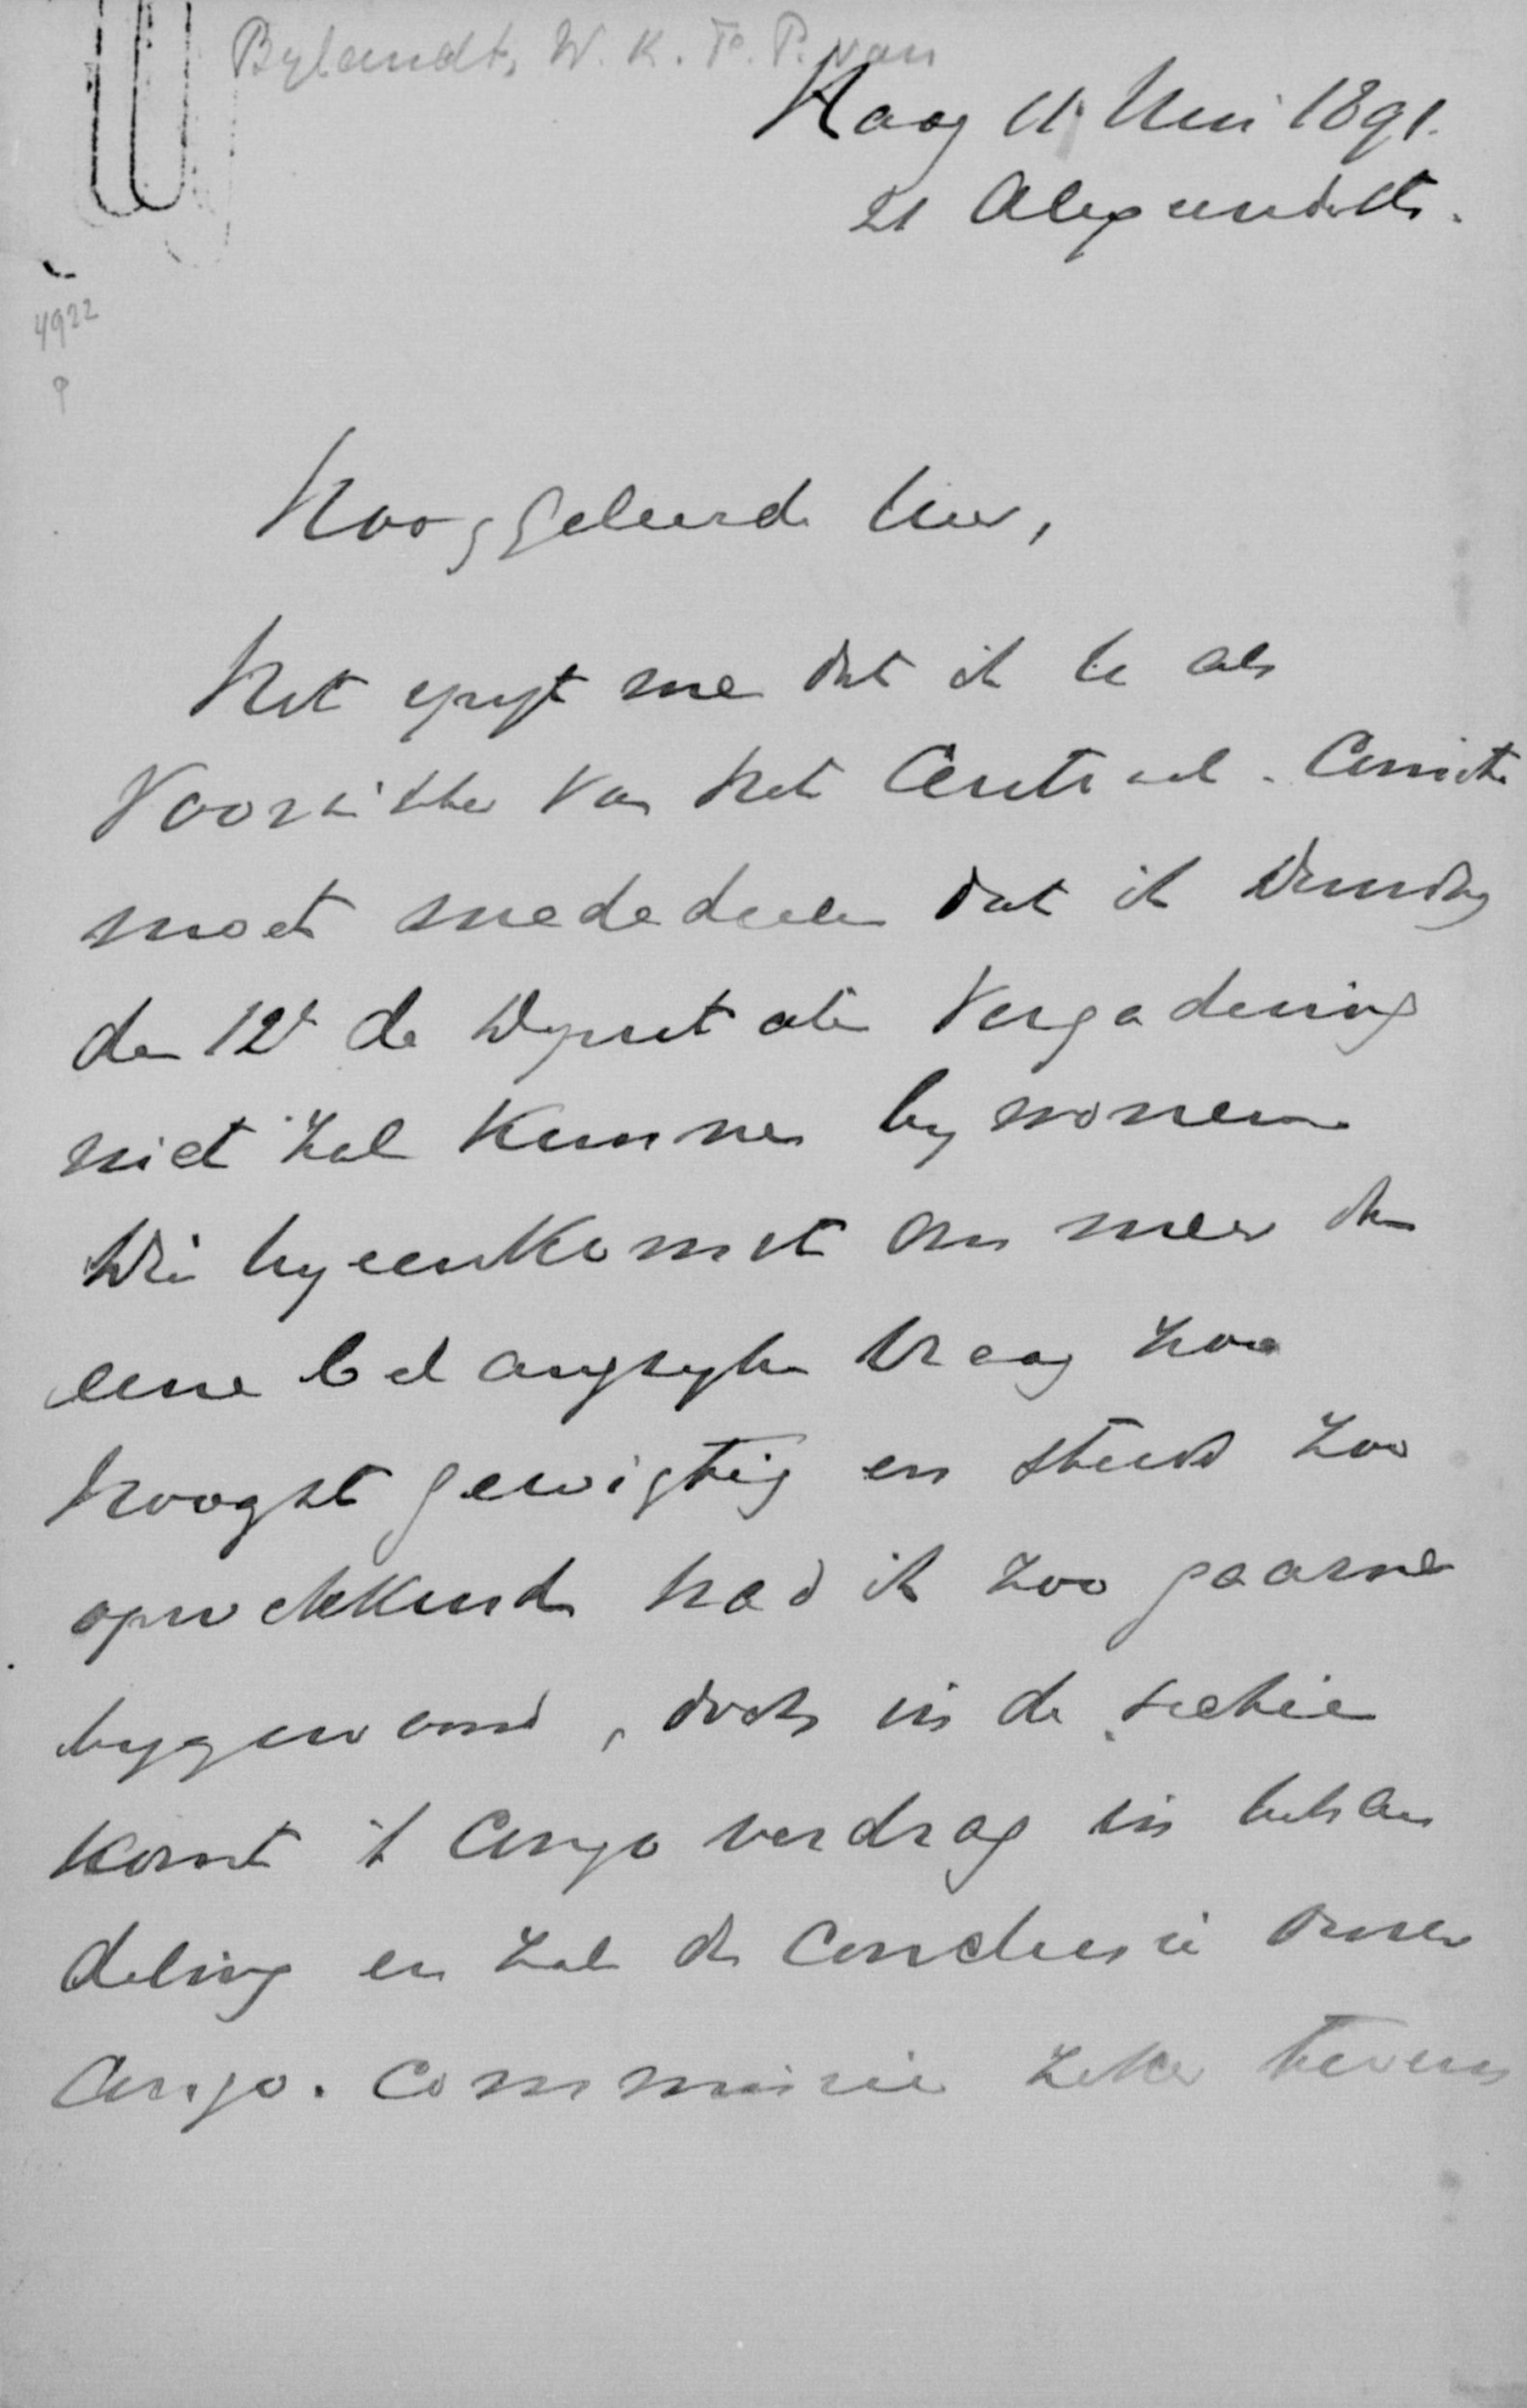 Bylandt, W. K. F. P. van
Haag 11 Mei 1891.
21 Alexanderstr.
4922
Hooggeleerde Heer,
Het spyt me dat ik U als
Voorzitter van het Centraal-Comite
moet mededeelen dat ik Dinsdag
den 12e de Deputaten Vergadering
niet zal kunnen bywonen
Die byeenkomst om meer dan
eene belangryke vraag zoo
hoogst gewigtig en steeds zoo
opwekkend had ik zoo gaarne
bygewoond, doch in de sectien
komt 't Congo verdrag in behan
deling en zal de conclusie onzer
Congo-Commissie zeker tevens